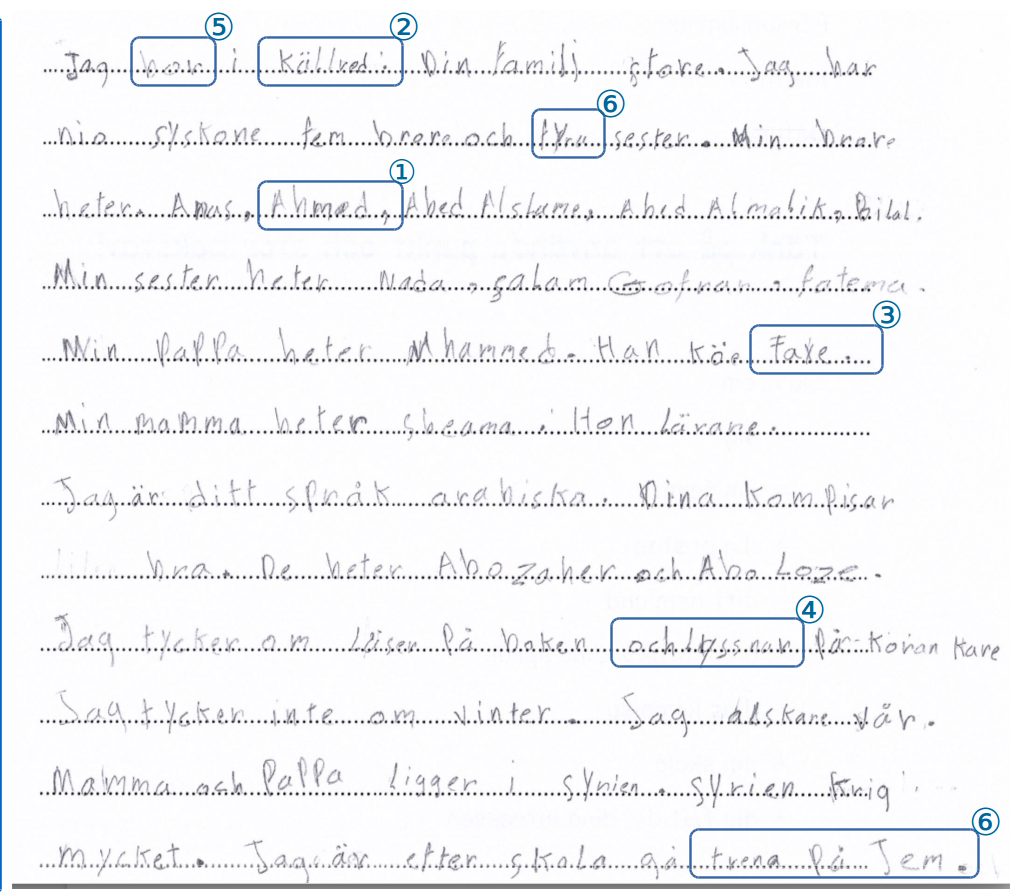 Jag bor i Källred. Din Familj store. Jag har
nio syskone fem brore och fyra sester. Min brore
heter. Anas, Ahmed, Abed Alslame, Abed Almalik, Bilal.
Min sester heter Nada, salam Gofran, fatema.
Min pappa heter Mhammed. Han köe Taxe.
Min mamma heter sheama. Hon Lärare.
Jag är ditt språk arabiska. Dina Kompisar
bra. De heter Abo zaher och Abo Loze.
Jag tycker om Läser på boken och lyssnar på Koran Kare
Jag tycker inte om vinter. Jag älskare vår.
Mamma och Pappa Ligger i syrien. syrien Krig
mycket. Jag är efter skola gå trena på Jem.
⑤
②
⑥
①
③
④
⑥